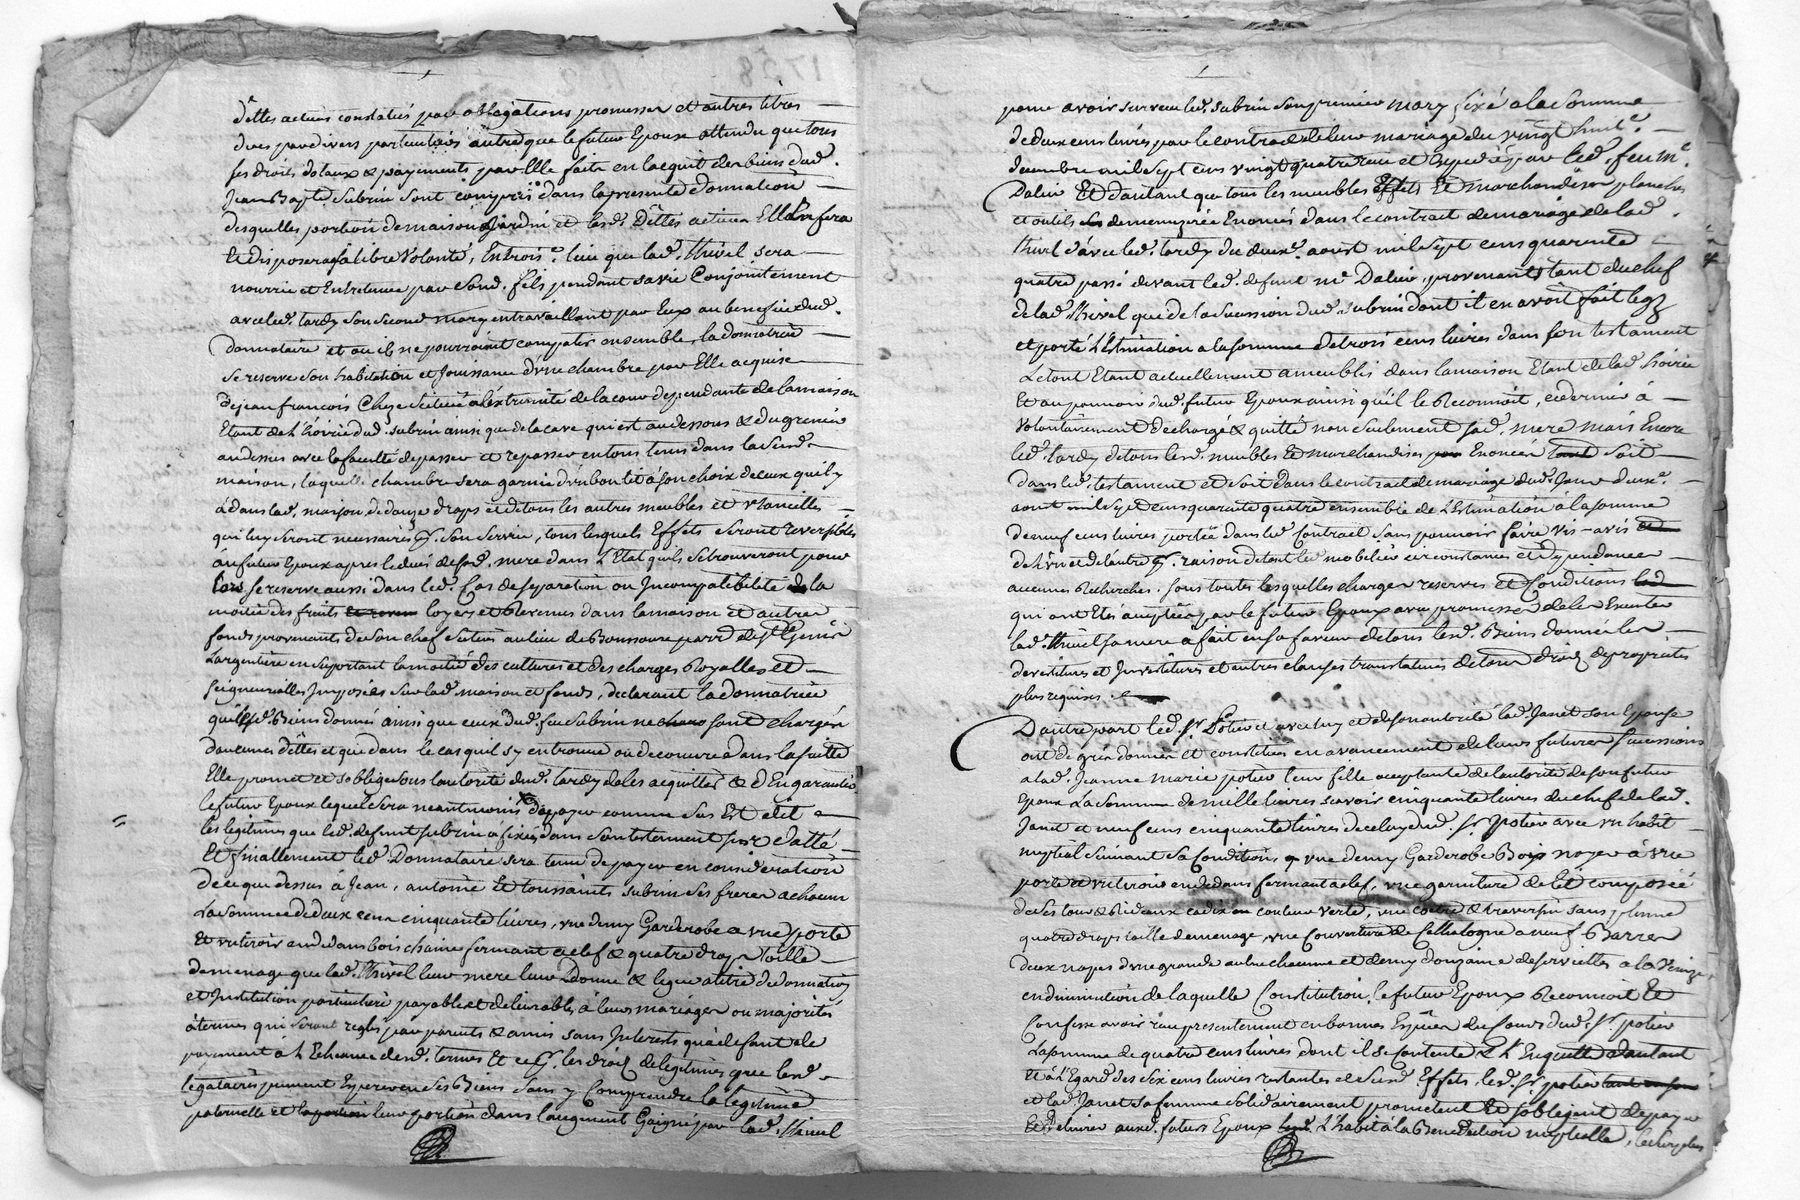 dettes actives constatées par obligations promesses et autres titres
dues par divers particuliers autre que le futur Epoux attendu que tous
ses droits dotaux & payements par Elle faits en lacquit des biens dud.
Jean Bapte. Subrin sont compris dans la presente donnation
desquelles portion de maison Jardin et lesd. Dettes actives Elle fera
et disposera à libre volonté, En trois.e lieu que lad. Thivel sera
nourrie et Entretenue par sond. fils pendant sa vie Conjointement
avec led. tardy son second mary en travaillant par Eux au benefice dud.
donnataire et où ils ne pourroient compatir ensemble, la donnatrice
se reserve son habitation et Jouissance d'vne chambre par Elle acquise
de jean françois Cheze scituée à l'extremité de la cour dependante de la maison
Etant de l'hoirie dud. subrin ainsi que de la cave qui est au dessous & du grenier
au dessus avec la faculté de passer et repasser en tous tems dans la susd.
maison, laquelle chambre sera garnie d'un bon lit à son choix de ceux qu'il y
a dans lad. maison, de douze draps et de tous les autres meubles et vtancilles
qui luy seront necessaires pr. son service, tous lesquels Effets seront reversibles
au futur Epoux apres le deces de sad. mere dans l'Etat qu'ils se trouveront pour
lors se reserve aussi dans led. Cas de separation ou Incompatibilité la
moitié des fruits loyers et Revenus dans la maison et autres
fonds provenants de son chef scitués au lieu de Bonsson parr. de St. Genis
Largentiere en suportant la moitié des cultures et des charges Royalles et
seigneurialles Imposées sur lad. maison et fonds, declarant la donnatrice
que lesd. Biens donnés ainsi que ceux dud. feu Subrin ne sont chargés
daucunes dettes et que dans le cas quil s'y en trouve ou decouvre dans la suitte
Elle promet et s'oblige sous lautorité dud. tardy de les acquitter & d'En garantir
le futur Epoux lequel sera neantmoins de payer comme sus Est dit
les legitimes que led. defunt subrin a fixé dans son testement sus datté
Et finallement led. Donnataire sera tenu de payer en consideration
de ce que dessus à Jean, antoine Et toussaints subrin ses freres a chacun
La somme de deux cens cinquante livres, vne demy Garderobe a vne porte
et vn tiroir au dedans bois chaine fermant a clef & quatre draps toille
de menage que lad. Thivel leur mere leur Donne & legue a titre de donnation
et Institution particuliere payables et delivrables à leurs mariages ou majorités
à termes qui seront regles par parents & amis sans Interets qu'à defaut de
payement à l'Echeance desd. termes Et ce pr. les droits de legitimes que lesd.
legataires peuvent Esperer en ses Biens sans y Comprendre la legitime
paternelle et leur portion dans laugment Gaigné par lad. thivel
pour avoir survecu led. subrin son premier mary fixé a la somme
de deux cens livres par le contract de leur mariage du vingt huit.e
decembre mil sept cens vingt quatre reçu et Expedié par led. feu me.
Dalier Et d'autant que tous les meubles Effets Et marchandises planches
et outils de menuzerie Enoncés dans le contrait de mariage de lad.
thivel d'avec led. tardy du deuxe. aoust mil sept cens quarente
quatre passé devant led. defunt me. Dalier, provenants tant du chef
de lad. Thivel que de la succession dud. subrin dont il en avoit fait legs
et porté L'Estimation a la somme de trois cens livres dans son testament
Le tout Etant actuellement ameublis dans la maison Etant de lad. hoirie
Et au pouvoir dud. futur Epoux ainsi qu'il le Reconnoit, ce dernier à
volontairement dechargé & quitté non seulement sad. mere mais Encore
led. tardy de tous lesd. meubles Et marchandises Enoncés soit
dans led. testament et soit dans le contract de mariage dud. Jour deuxe.
aout mil sept cens quarante quatre ensemble de L'Estimation à la somme
de neuf cens livres portée dans led. Contract sans pouvoir faire vis-avis
de L'vn et de l'autre pr. raison de tout led. mobilier circonstances et dependances
aucunes Recherches. sous toutes lesquelles charges reserves et Conditions
qui ont Eté acceptées par le futur Epoux avec promesse de les Executer
lad. thivel sa mere a fait en sa faveur de tous lesd. Biens donnés les
devetitures et Investitures et autres clauses translatives de tous droits de proprietés
plus requises
D'autre part led. sr. Potier et avec luy et de son autorité lad. Janet son Epouse
ont de gré donnés et constitués en avancement de leurs futures successions
a lad. Jeanne marie potier leur fille acceptante de lautorité de son futur
Epoux La somme de mille livres savoir cinquante livres du chef de lad.
Janet et neuf cens cinquante livres de celuy dud. sr potier avec vn habit
nuptial suivant sa Condition, vne demy Garderobe Bois noyer à vne
porte et vn tiroir en dedans fermant a clef, vne garniture de lit composée
de ses tour & Rideaux cadix couleur verte, vne coitre & traversin sans plume
quatre draps toille de menage, vne Couverture de Cathalogne a neuf Barres
deux napes d'vne grande aulne chacune et demy douzaine de serviettes a la Venize,
en diminution de laquelle Constitution, le futur Epoux Reconnoit Et
Confesse avoir reçu presentement en bonnes Especes de cours dud. sr potier
La somme de quatre cens livres dont il se contente & L'En quitte d'autant
Et à l'Egard des six cens livres restantes et susd. Effets, led. sr potier
et lad. Janet sa femme solidairement promettent Et s'obligent de payer
Et delivrer aud. futur Epoux L'habit à la Benediction nuptialle,